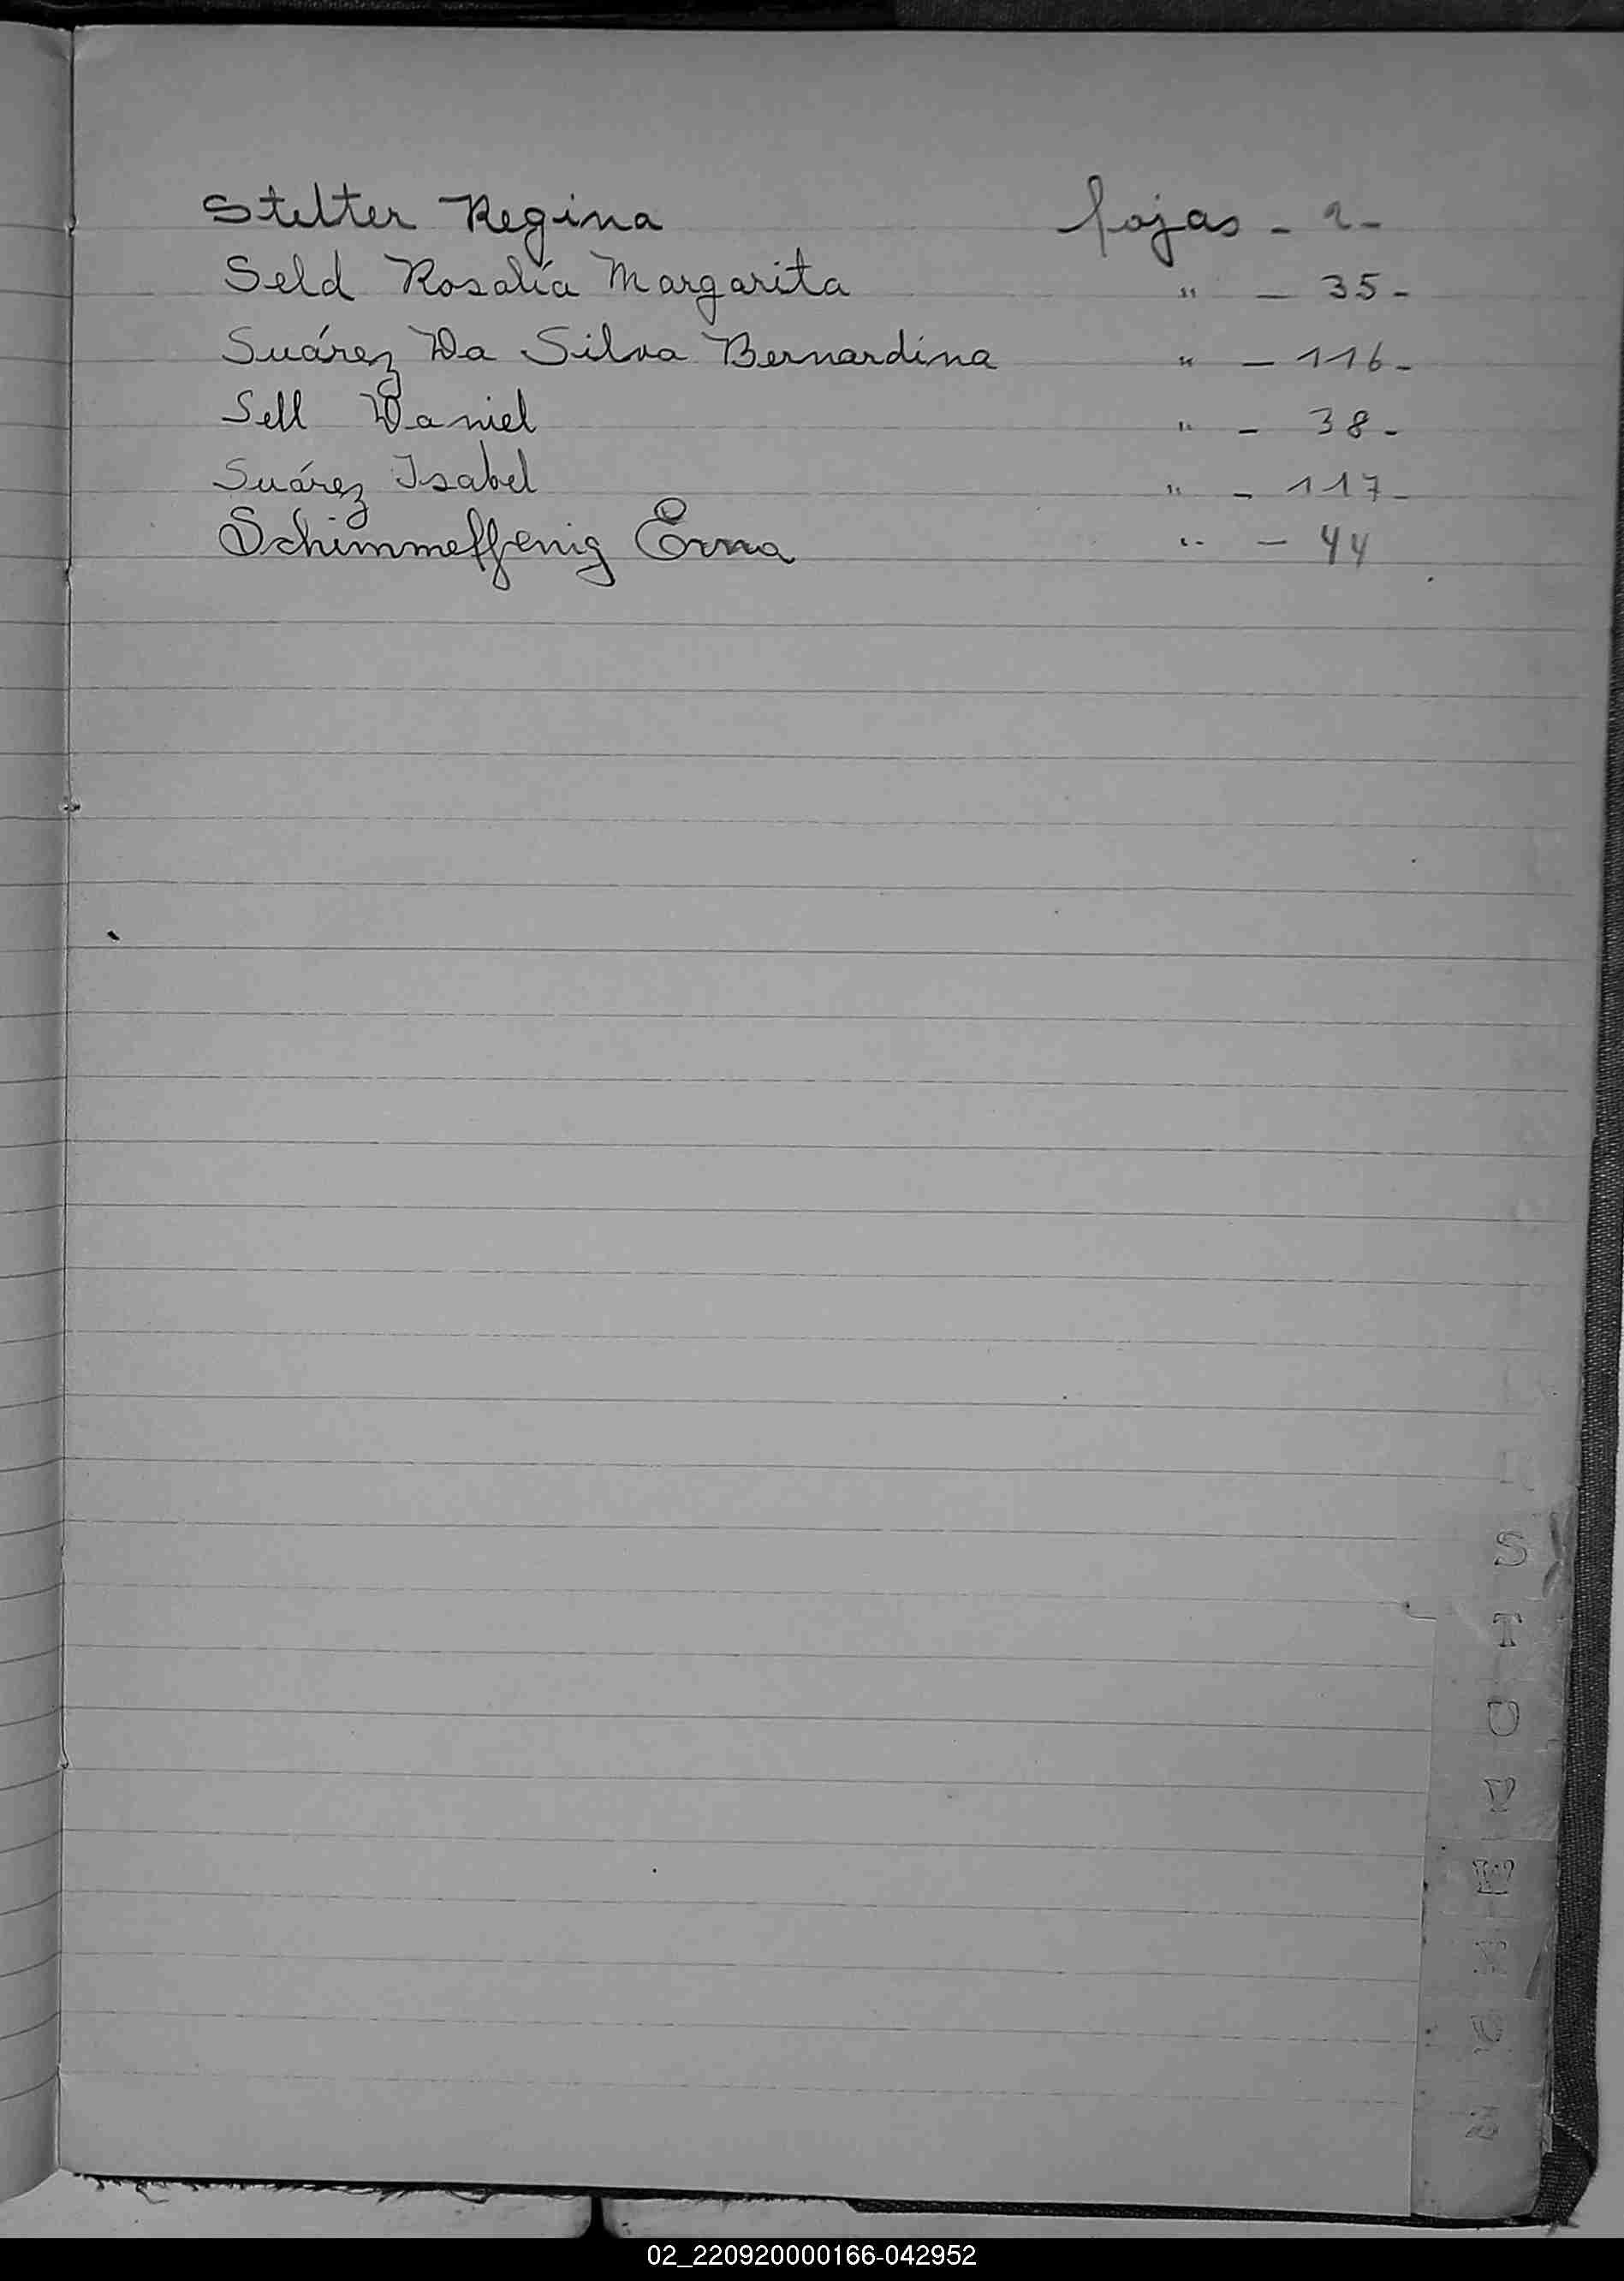 Stelter Regina fojas - 2 -
Seld Rosalía Margarita " - 35 -
Suárez Da Silva Bernardina " - 116 -
Sell Daniel " - 38 -
Suárez Isabel " - 117 -
Schimmelffenig Erna " - 44
S
T
U
V
02_220920000166-042952